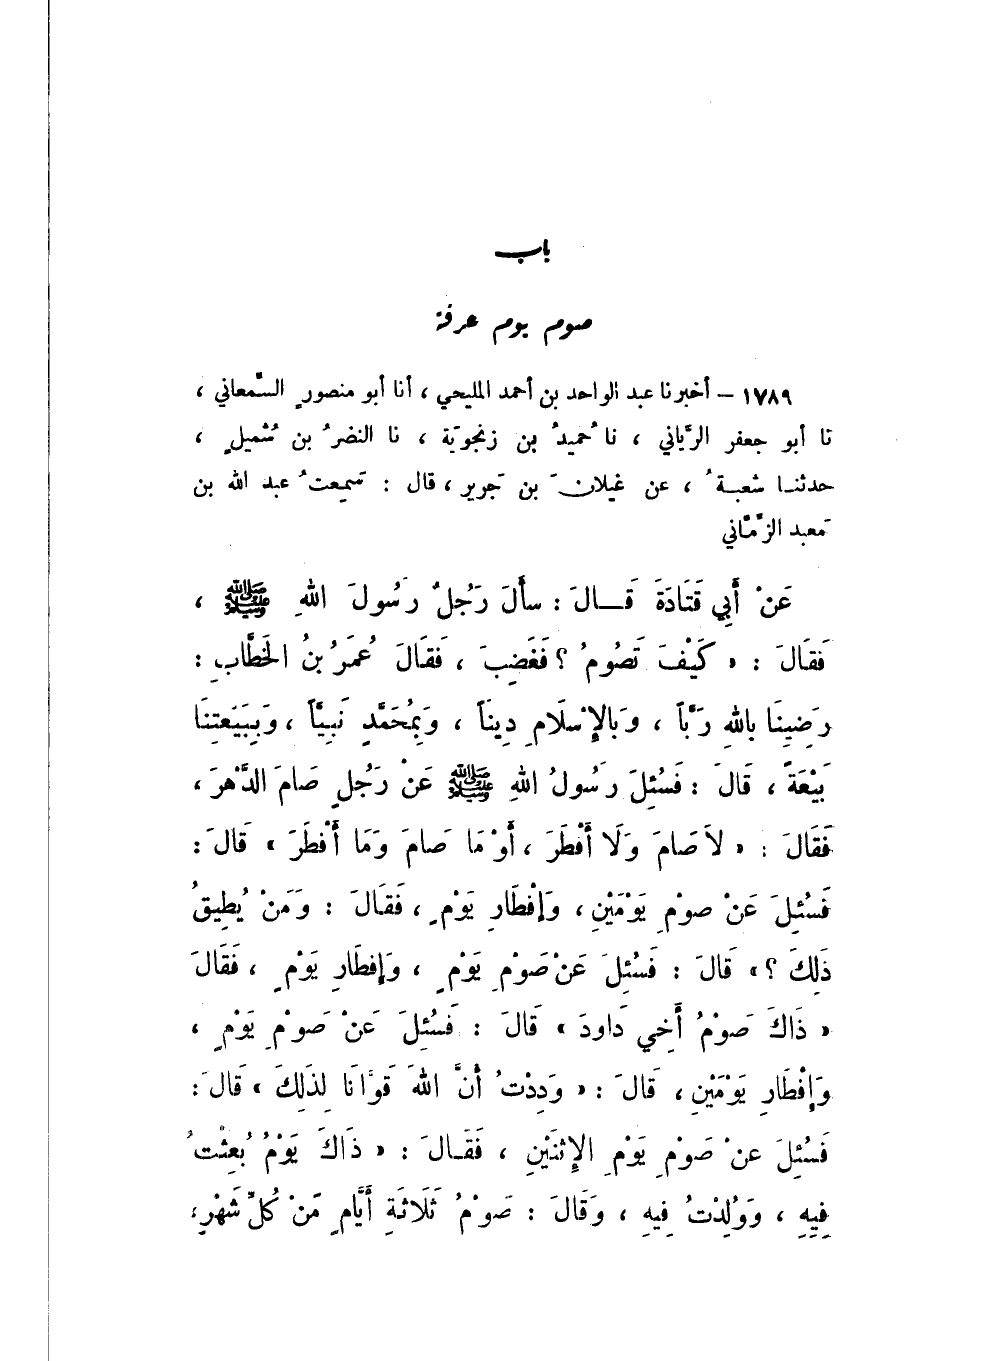 باب
صوم يوم عرفة
١٧٨٩ – أخبرنا عبد الواحد بن أحمد المليحي ، أنا أبو منصورٍ السَّمعاني ،
نا أبو جعفر الرَّياني ، نا حُميدُ بن زنجوَية ، نا النضرُ بن شُميلٍ ،
حدثنا شعبةُ ، عن غيلانَ بن جَرير ، قال : سَمِعتُ عبد الله بن
مَعبد الزِّمَّاني
عَنْ أَبِي قَتَادَةَ قَالَ : سأَلَ رَجُلٌ رَسُولَ اللهِ ﷺ ،
فَقَالَ : « كَيْفَ تَصُومُ ؟ فَغَضِبَ ، فَقَالَ عُمَرُ بنُ الخَطَّابِ :
رَضِينَا باللهِ رَبَّاً ، وَبالإِسْلَامِ دِينَاً ، وَبِمُحَمَّدٍ نَبِيَّاً ، وَبِبَيَعَتِنَا
بَيْعَةً ، قَالَ : فَسُئِلَ رَسُولُ اللهِ ﷺ عَنْ رَجُلٍ صَامَ الدَّهْرَ ،
فَقَالَ : « لاَ صَامَ وَلَا أَفْطَرَ ، أَوْ مَا صَامَ وَمَا أَفْطَرَ » قَالَ :
فَسُئِلَ عَنْ صوْمِ يَوْمَيْنِ ، وَإِفْطَارِ يَوْمٍ ، فَقَالَ : وَمَنْ يُطِيقُ
ذَلِكَ ؟ » قَالَ : فَسُئِلَ عَنْ صَوْمِ يَوْمٍ ، وَإِفطَارِ يَوْمٍ ، فَقَالَ
« ذَاكَ صَوْمُ أَخِي دَاودَ » قَالَ : فَسُئِلَ عَنْ صَوْمِ يَوْمٍ ،
وَإِفْطَارِ يَوْمَيْنِ ، قَالَ : « وَدِدْتُ أَنَّ اللهَ قَوَّانَا لِذَلِكَ » قَالَ :
فَسُئِلَ عنْ صَوْمِ يَوْمِ الإِثنَيْنِ ، فَقَالَ : « ذَاكَ يَوْمُ بُعِثْتُ
فِيهِ ، وَوُلِدْتُ فِيهِ ، وَقَالَ : صَوْمُ ثَلَاثَةِ أَيَّامٍ مَنْ كُلِّ شَهْرٍ ،